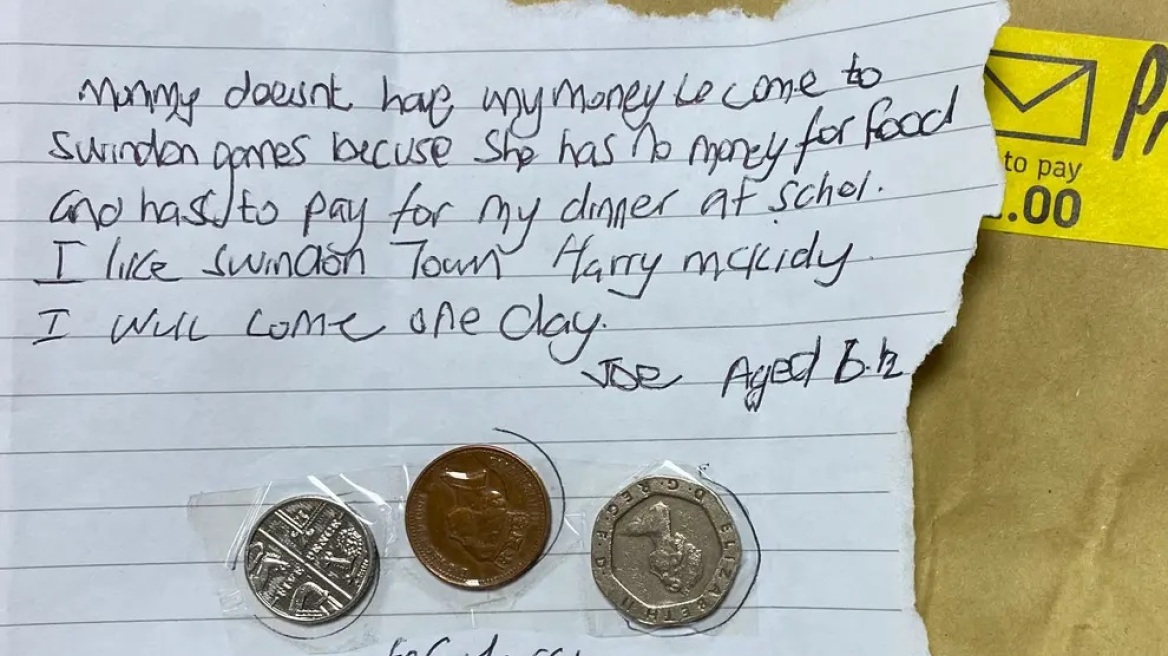 Mummy doesnt have any money to come to
swindon games becuse she has no money for food
and hass to pay for my dinner at schol.
I like swindon Town Harry mckidy
I will come one day.
Joe Aged 6.½
to pay
.00
FIVE PENCE
ELIZABETH II D.G REG F.D